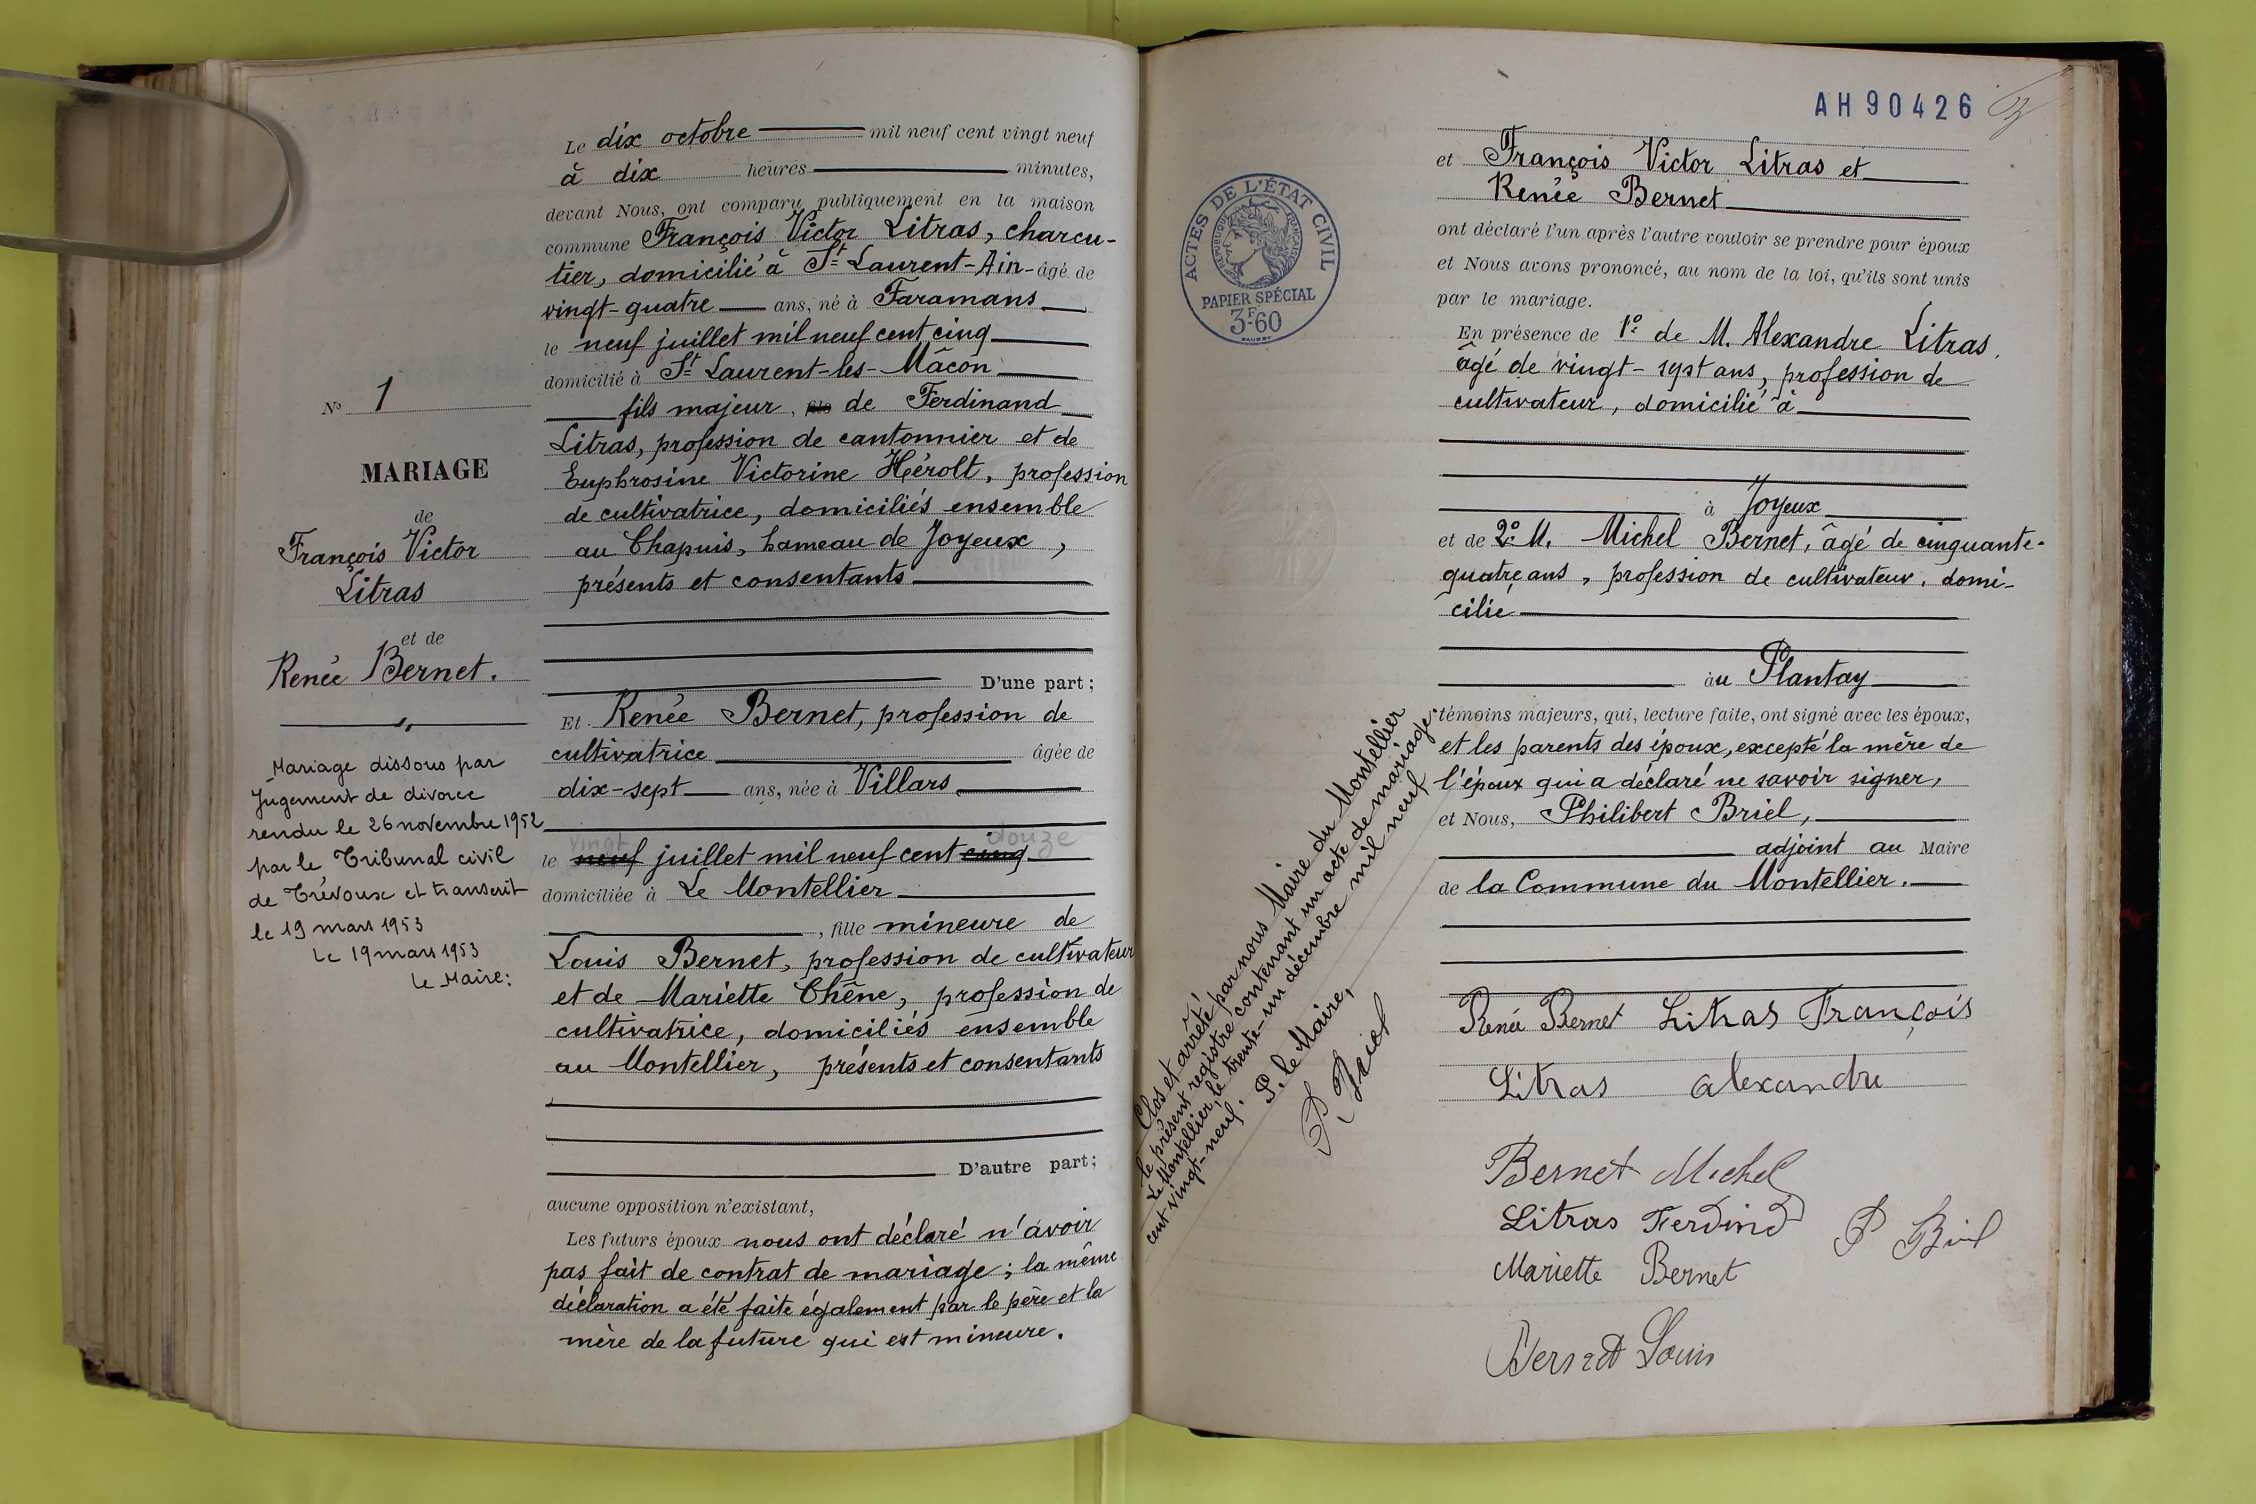 Le dix octobre mil neuf cent vingt neuf
à dix heures minutes,
devant Nous, ont comparu publiquement en la maison
commune François Victor Litras, charcu-
tier, domicilié à St Laurent-Ain - âgé de
vingt-quatre ans, né à Faramans
le neuf juillet mil neuf cent cinq
domicilié à St Laurent-les-Mâcon
fils majeur, fils de Ferdinand
Litras, profession de cantonnier et de
Euphrosine Victorine Hérolt, profession
de cultivatrice, domiciliés ensemble
au Chapuis, hameau de Joyeux,
présents et consentants
D'une part;
Et Renée Bernet, profession de
cultivatrice âgée de
dix-sept ans, née à Villars
vingt douze
le neuf juillet mil neuf cent cinq
domiciliée à Le Montellier
, fille mineure de
Louis Bernet, profession de cultivateur
et de Mariette Chêne, profession de
cultivatrice, domiciliés ensemble
au Montellier, présents et consentants
D'autre part;
aucune opposition n'existant,
Les futurs époux nous ont déclaré n'avoir
pas fait de contrat de mariage; la même
déclaration a été faite également par le père et la
mère de la future qui est mineure.
No 1
MARIAGE
de
François Victor
Litras
et de
Renée Bernet.
Mariage dissous par
Jugement de divorce
rendu le 26 novembre 1952
par le Tribunal civil
de Trévoux et transcrit
le 19 mars 1953
Le 19 mars 1953
Le Maire:
AH90426
ACTES DE L'ÉTAT CIVIL
RÉPUBLIQUE FRANÇAISE
PAPIER SPÉCIAL
3F60
et François Victor Litras et
Renée Bernet
ont déclaré l'un après l'autre vouloir se prendre pour époux
et Nous avons prononcé, au nom de la loi, qu'ils sont unis
par le mariage.
En présence de 1° de M. Alexandre Litras,
âgé de vingt-sept ans, profession de
cultivateur, domicilié à
à Joyeux
et de 2° M. Michel Bernet, âgé de cinquante-
quatre ans, profession de cultivateur, domi-
cilié
au Plantay
témoins majeurs, qui, lecture faite, ont signé avec les époux,
et les parents des époux, excepté la mère de
l'époux qui a déclaré ne savoir signer,
et Nous, Philibert Briel,
adjoint au Maire
de la Commune du Montellier.
Renée Bernet Litras François
Litras alexandre
Bernet Michel
Litras Ferdind
P Briel
Mariette Bernet
Bernet Louis
Clos et arrêté par nous Maire du Montellier
le présent registre contenant un acte de mariage.
Le Montellier, le trente-un décembre mil neuf
cent vingt-neuf. P. le Maire,
P Briel